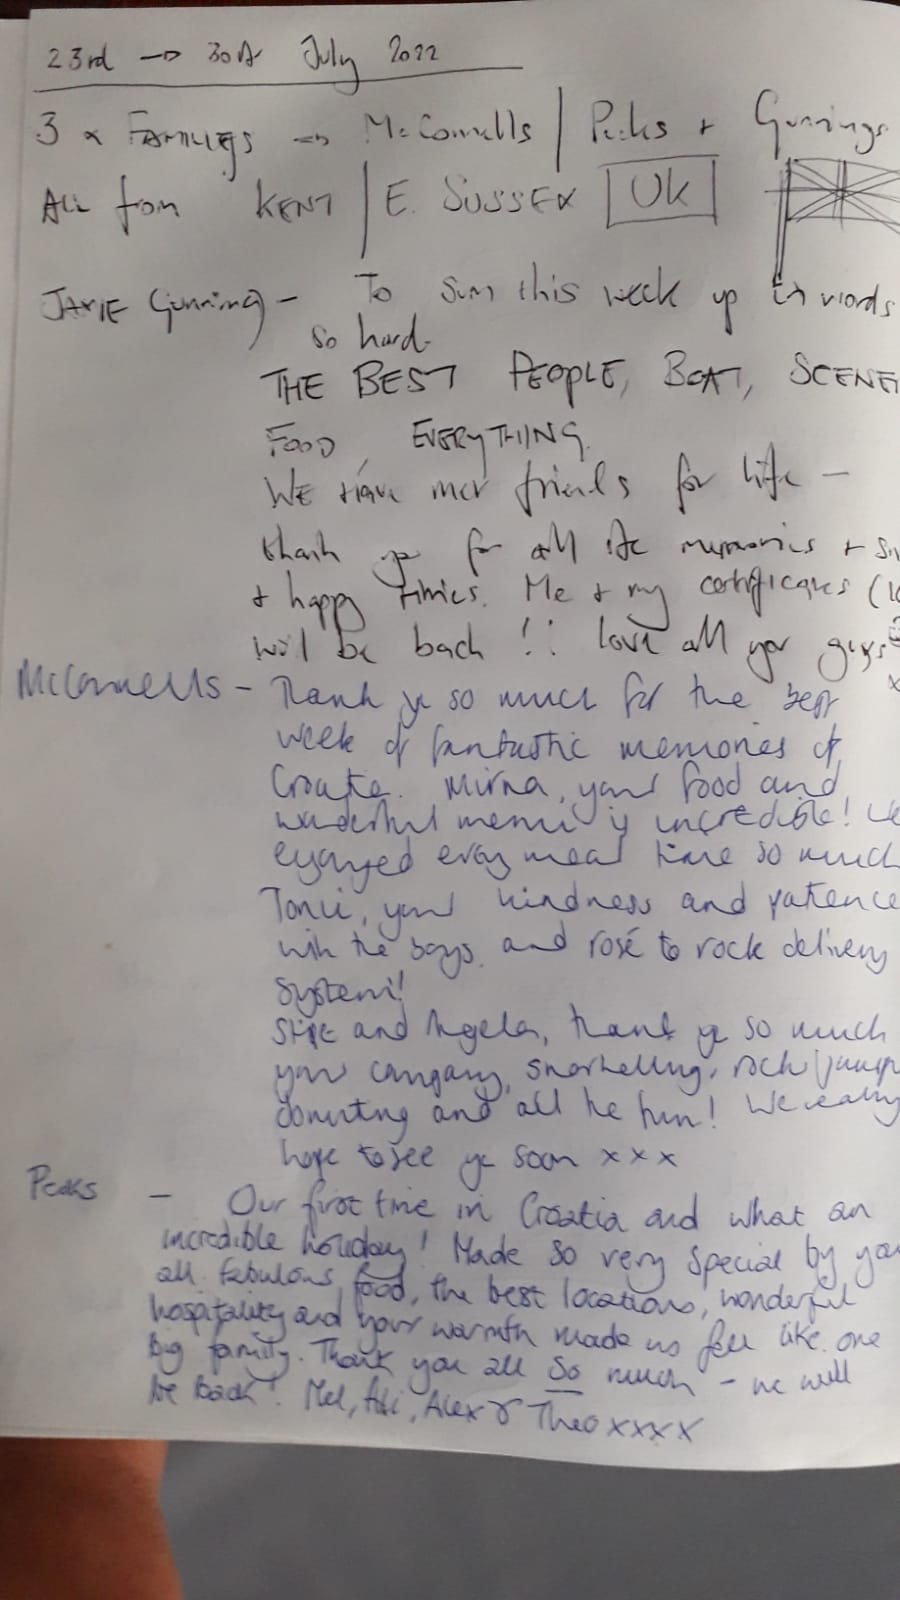 23rd → 30th July 2022
3 x FAMILIES → McConnells | Peaks + Gunnings
ALL from KENT | E. SUSSEX UK
JAMIE Gunning - To sum this week up in words
so hard.
THE BEST PEOPLE, BOAT, SCENE
FOOD, EVERYTHING.
WE HAVE met friends for life -
thank you for all the memories +
+ happy times. Me + my certificates
will be back !! love all you guys
x
McConnells - Thank you so much for the best
week of fantastic memories of
Croatia. Mirna, your food and
wonderful menu is incredible! We
enjoyed every meal time so much
Toni, your kindness and patience
with the boys. and rosé to rock delivery
system!
Stipe and Angela, thank you so much
your company, snorkelling, rock jump
donuting and all the fun! We really
hope to see you soon x x x
Peaks - Our first time in Croatia and what an
incredible holiday! Made so very special by you
all. fabulous food, the best locations, wonderful
hospitality and your warmth made us feel like one
big family. Thank you all so much - we will
be back! Mel, Alex & Theo xxxx